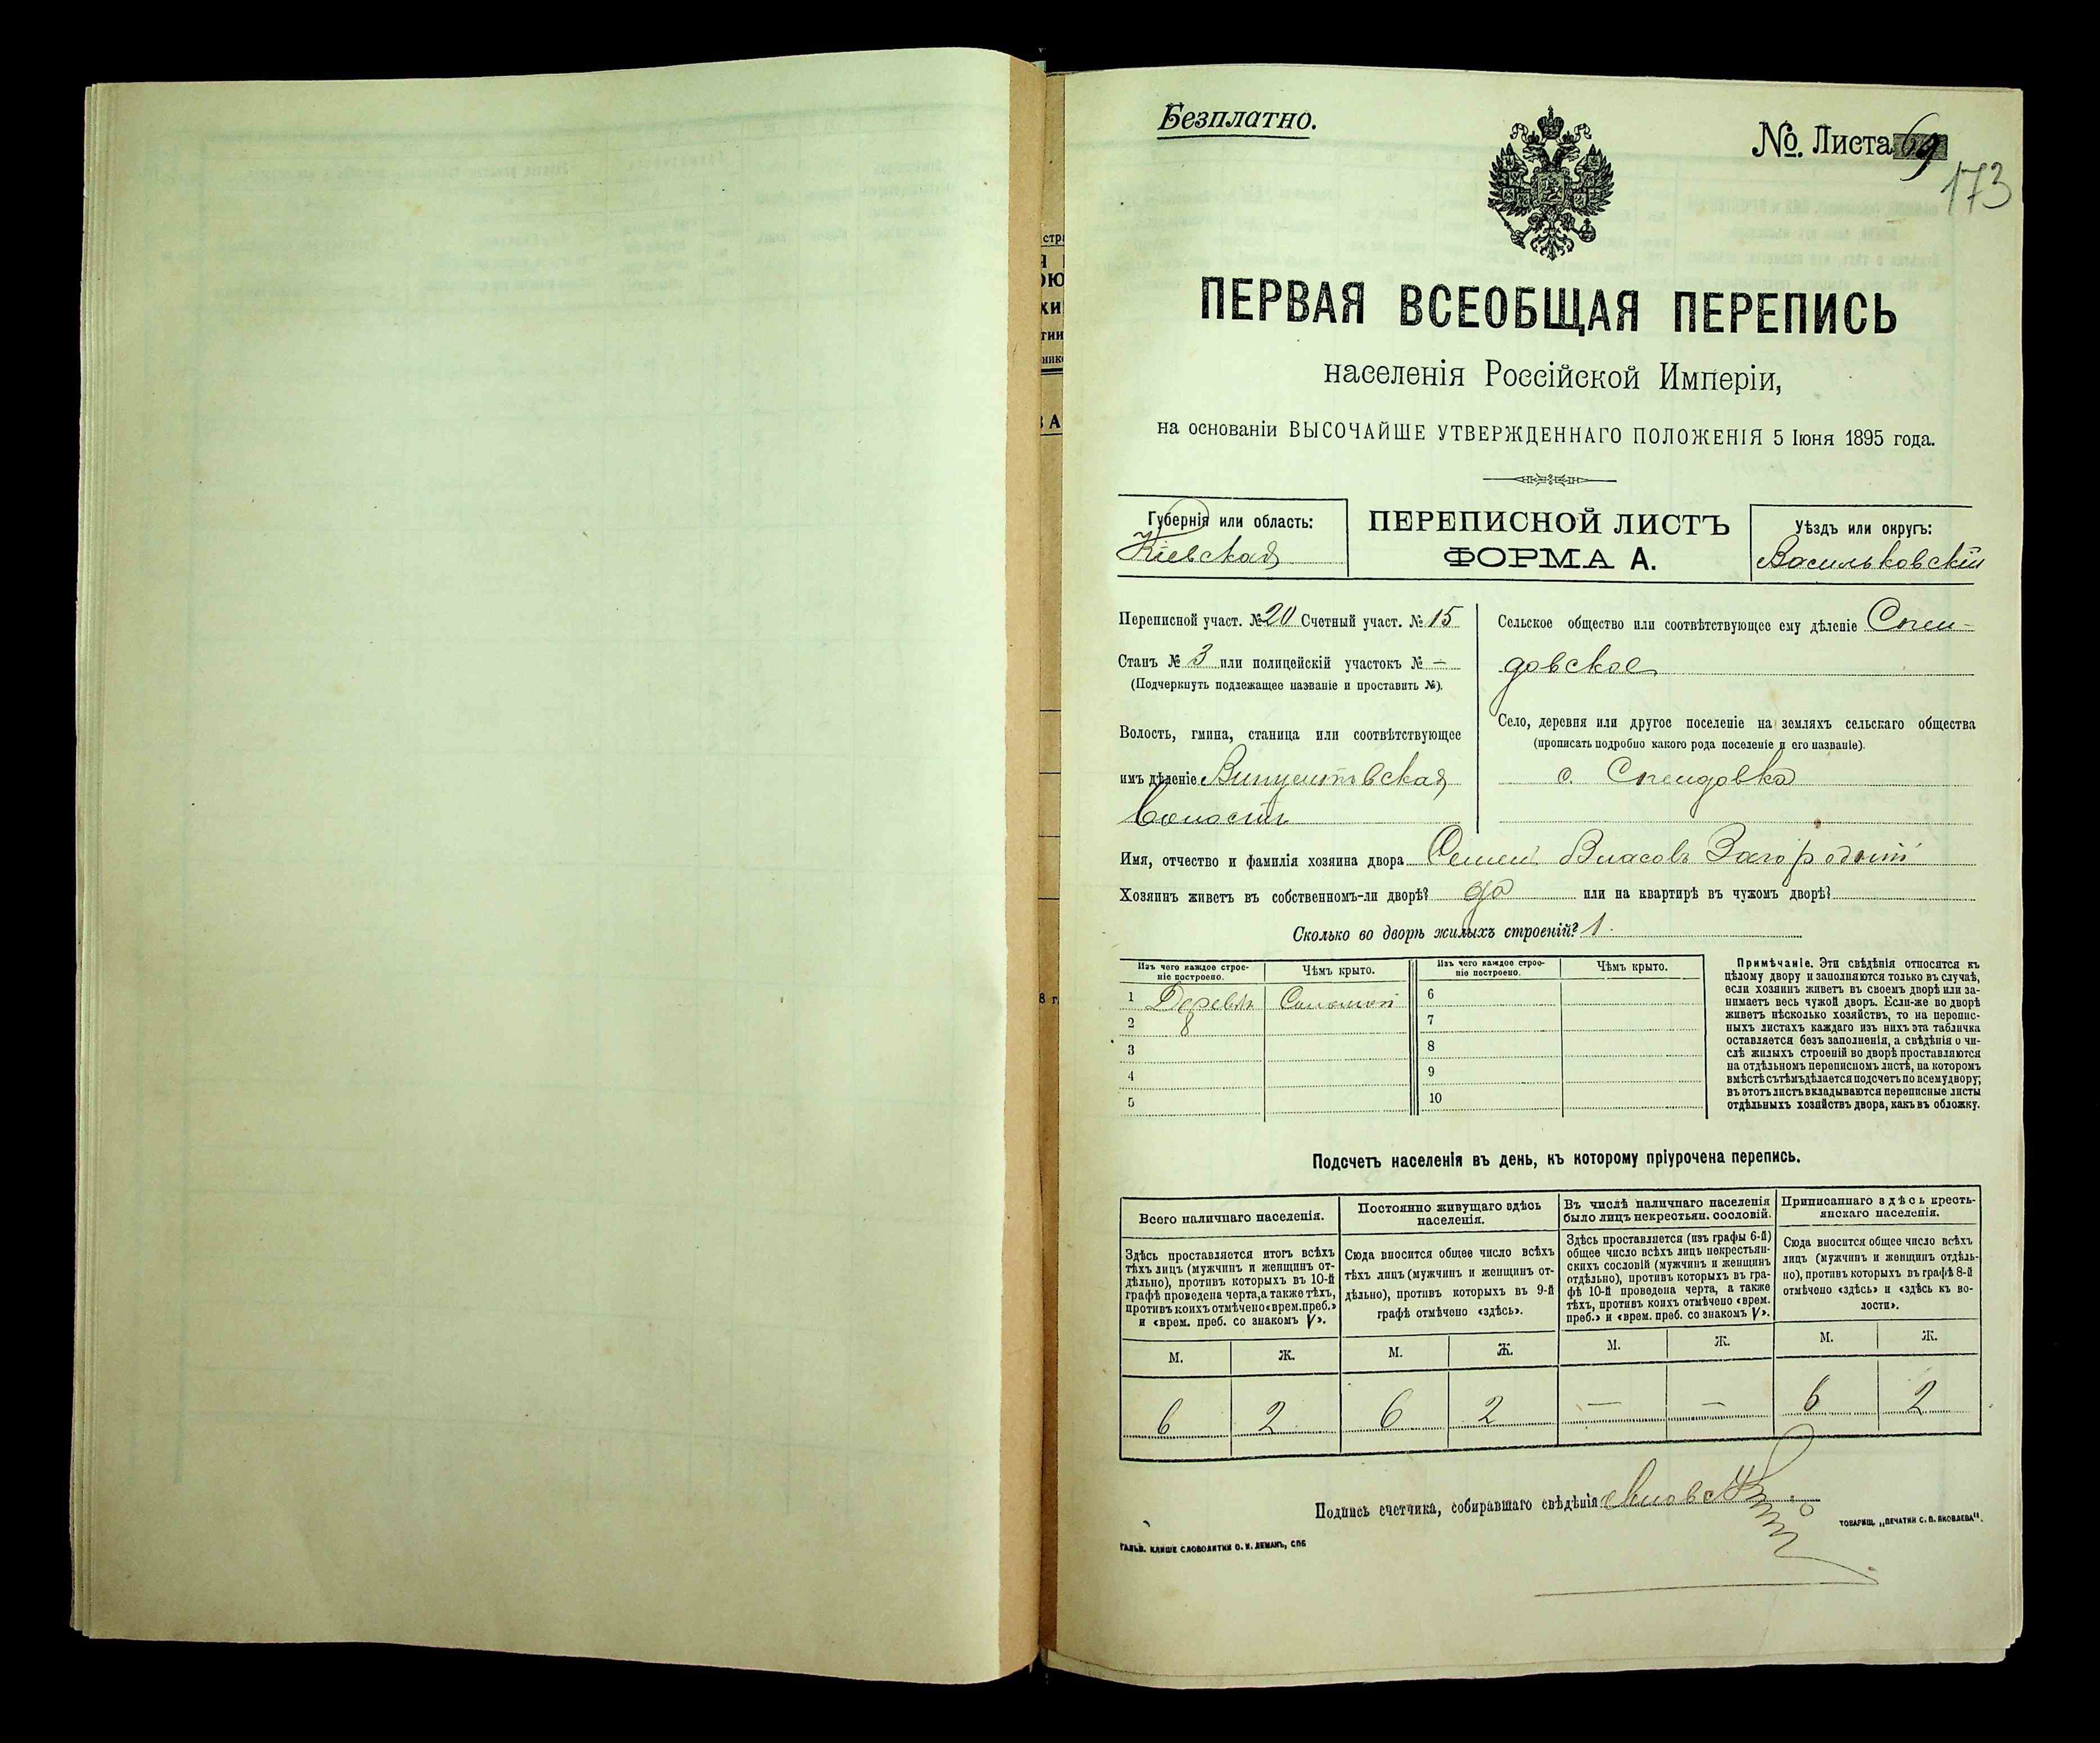 Безплатно.
№ Листа 69
173
ПЕРВАЯ ВСЕОБЩАЯ ПЕРЕПИСЬ
населенія Россійской Имперіи,
на основаніи ВЫСОЧАЙШЕ УТВЕРЖДЕННАГО ПОЛОЖЕНІЯ 5 Іюня 1895 года.
Губернія или область:
Кіевская
ПЕРЕПИСНОЙ ЛИСТЪ
ФОРМА А.
Уѣздъ или округъ:
Васильковскій
Переписной участ. № 20 Счетный участ. № 15
Станъ № 3 или полицейскій участокъ № —
(Подчеркнуть подлежащее названіе и проставить №).
Волость, гмина, станица или соотвѣтствующее
имъ дѣленіе
волость
Сельское общество или соотвѣтствующее ему дѣленіе Спен-
довское
Село, деревня или другое поселеніе на земляхъ сельскаго общества
(прописать подробно какого рода поселеніе и его названіе).
с. Спендовка
Имя, отчество и фамилія хозяина двора Семен Власовъ Загородній
Хозяинъ живетъ въ собственномъ-ли дворѣ? да или на квартирѣ въ чужомъ дворѣ?
Сколько во дворѣ жилыхъ строеній? 1.
Изъ чего каждое строе-
ніе построено.
Чѣмъ крыто.
Изъ чего каждое строе-
ніе построено.
Чѣмъ крыто.
1 Дерева Соломой 6
2 7
3 8
4 9
5 10
Примѣчаніе. Эти свѣдѣнія относятся къ
цѣлому двору и заполняются только въ случаѣ,
если хозяинъ живетъ въ своемъ дворѣ или за-
нимаетъ весь чужой дворъ. Если-же во дворѣ
живетъ нѣсколько хозяйствъ, то на перепис-
ныхъ листахъ каждаго изъ нихъ эта табличка
оставляется безъ заполненія, а свѣдѣнія о чи-
слѣ жилыхъ строеній во дворѣ проставляются
на отдѣльномъ переписномъ листѣ, на которомъ
вмѣстѣ съ тѣмъ дѣлается подсчетъ по всему двору;
въ этотъ листъ вкладываются переписные листы
отдѣльныхъ хозяйствъ двора, какъ въ обложку.
Подсчетъ населенія въ день, къ которому пріурочена перепись.
Всего наличнаго населенія.
Здѣсь проставляется итогъ всѣхъ
тѣхъ лицъ (мужчинъ и женщинъ от-
дѣльно), противъ которыхъ въ 10-й
графѣ проведена черта, а также тѣхъ,
противъ коихъ отмѣчено «врем. преб.»
и «врем. преб. со знакомъ V».
Постоянно живущаго здѣсь
населенія.
Сюда вносится общее число всѣхъ
тѣхъ лицъ (мужчинъ и женщинъ от-
дѣльно), противъ которыхъ въ 9-й
графѣ отмѣчено «здѣсь».
Въ числѣ наличнаго населенія
было лицъ некрестьян. сословій.
Здѣсь проставляется (изъ графы 6-й)
общее число всѣхъ лицъ некрестьян-
скихъ сословій (мужчинъ и женщинъ
отдѣльно), противъ которыхъ въ гра-
фѣ 10-й проведена черта, а также
тѣхъ, противъ коихъ отмѣчено «врем.
преб.» и «врем. преб. со знакомъ V».
Приписаннаго здѣсь кресть-
янскаго населенія.
Сюда вносится общее число всѣхъ
лицъ (мужчинъ и женщинъ отдѣль-
но), противъ которыхъ въ графѣ 8-й
отмѣчено «здѣсь» и «здѣсь къ во-
лости».
М. Ж. М. Ж. М. Ж. М. Ж.
6 2 6 2 — — 6 2
Подпись счетчика, собиравшаго свѣдѣнія
ГАЛЬВ. КЛИШЕ СЛОВОЛИТНИ О. И. ЛЕМАНЪ, СПБ
ТОВАРИЩ. „ПЕЧАТНИ С. П. ЯКОВЛЕВА".